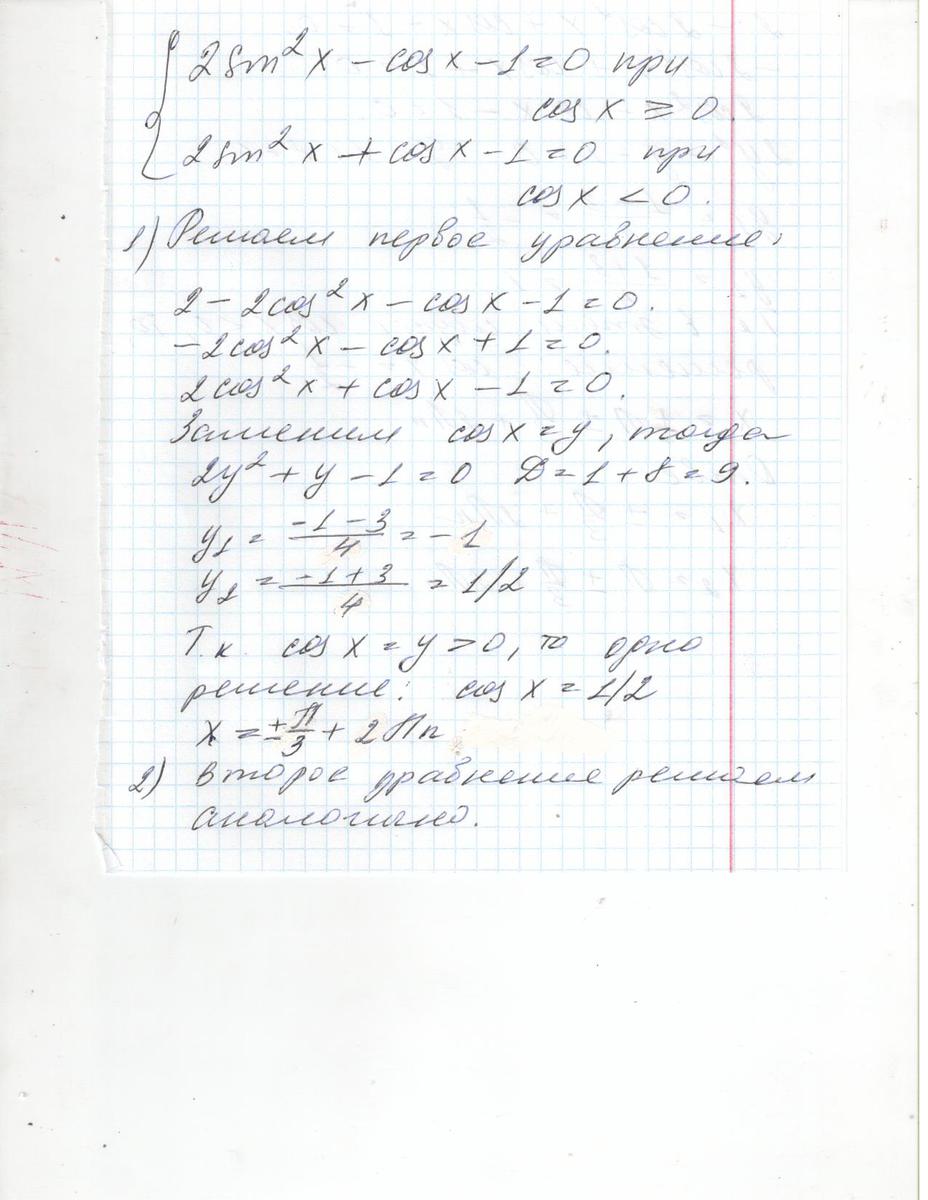 2 sin² x - cos x - 1 = 0 при
cos x ≥ 0.
2 sin² x + cos x - 1 = 0 при
cos x < 0.
1) Решаем первое уравнение:
2 - 2cos² x - cos x - 1 = 0.
-2cos² x - cos x + 1 = 0.
2cos² x + cos x - 1 = 0.
Заменим cos x = y, тогда
2y² + y - 1 = 0 D = 1 + 8 = 9.
y₁ = (-1 - 3)/4 = -1
y₂ = (-1 + 3)/4 = 1/2
Т.к. cos x = y > 0, то одно
решение: cos x = 1/2
x = ± П/3 + 2Пn
2) Второе уравнение решаем
аналогично.